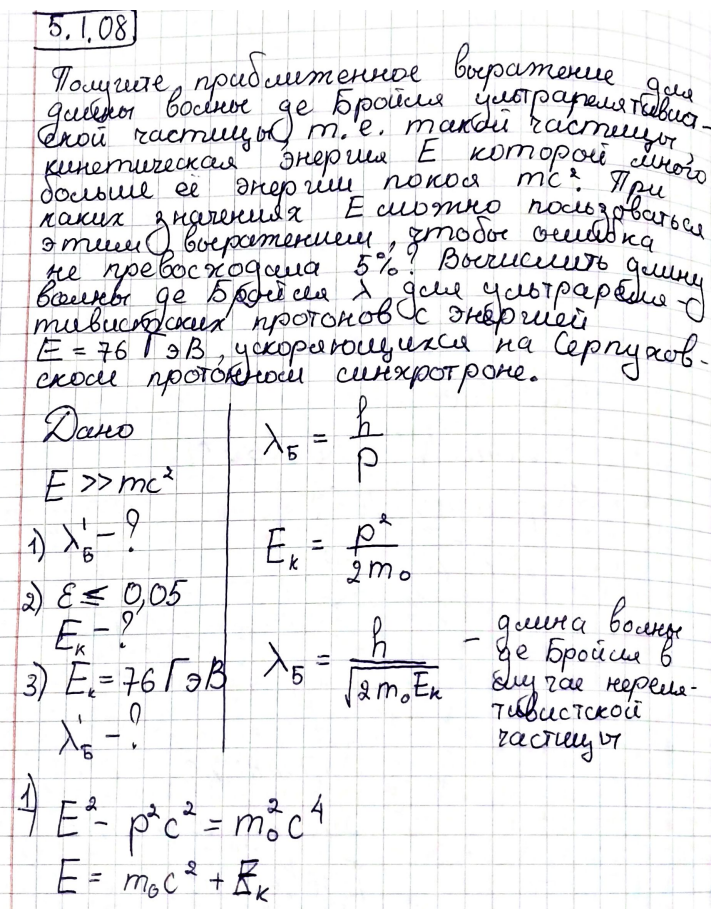 5.1.08
Получите приближенное выражение для
длины волны де Бройля ультрарелятивист-
ской частицы, т.е. такой частицы,
кинетическая энергия E которой много
больше её энергии покоя mc². При
каких значениях E можно пользоваться
этим выражением, чтобы ошибка
не превосходила 5%? Вычислить длину
волны де Бройля λ для ультрареля-
тивистских протонов с энергией
E = 76 ГэВ, ускоряющихся на Серпухов-
ском протонном синхротроне.
Дано
E >> mc²
1) λ'_Б - ?
2) ε ≤ 0,05
E_к - ?
3) E_к = 76 ГэВ
λ'_Б - ?
λ_Б = h/p
E_к = p²/2m₀
λ_Б = h/√(2m₀E_к) - длина волны
де Бройля в
случае нереля-
тивистской
частицы
1) E² - p²c² = m₀²c⁴
E = m₀c² + E_к